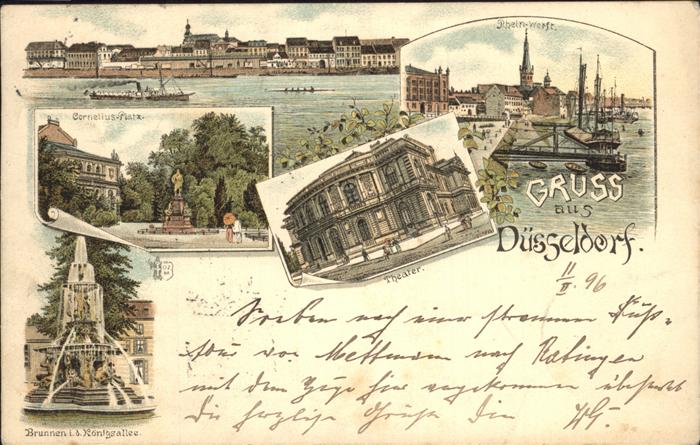 Rhein-Werft.
Cornelius-Platz.
GRUSS
aus
Düsseldorf.
Theater.
11/II. 96
Soeben nach einer strammen Fuß-
tour von Mettmann nach Ratingen
mit dem Zuge hier angekommen übersendet
die herzlichste Grüße Dein
Brunnen i. d. Königsallee.